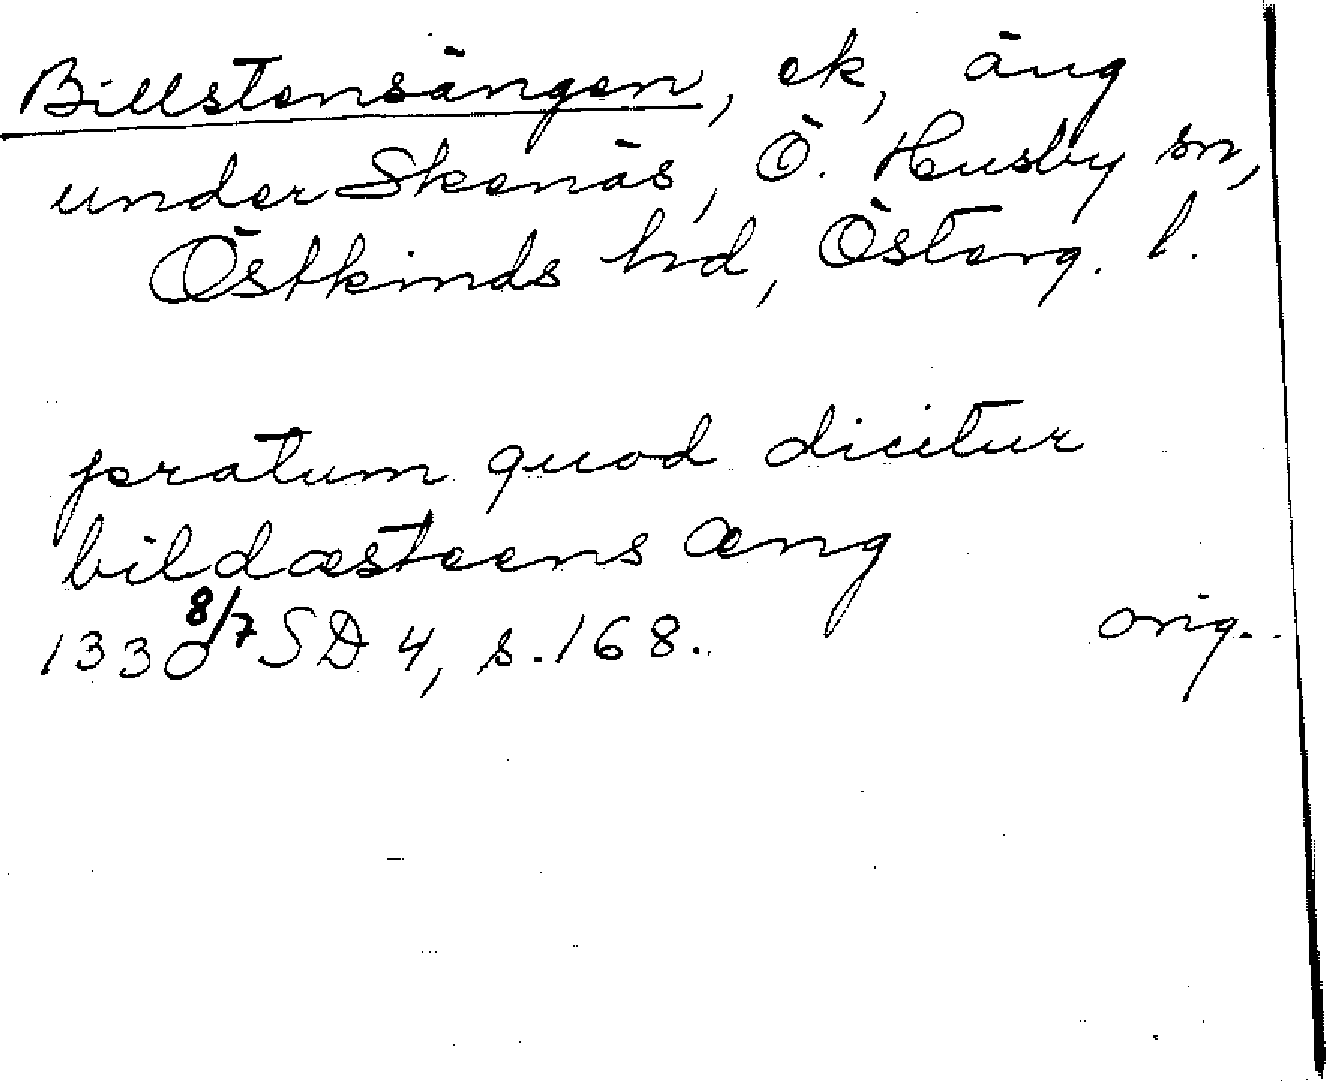 Billstensängen, ek, äng
under Skenäs, Ö. Husby sn,
Östkinds hd, Österg. l.
pratum quod dicitur
bildæsteens æng
1330 8/7 SD 4, s. 168.
orig.